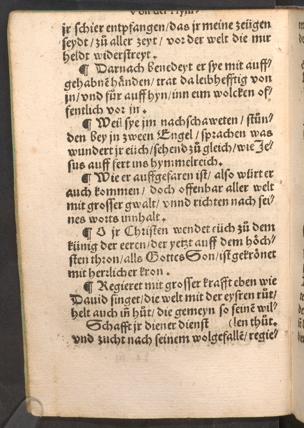 jr schier entpfangen/das jr meine zeügen
seydt/zů aller zeyt/vor der welt die mir
heldt widerstreyt.
¶ Darnach benedeyt er sye mit auff/
gehabnē hānden/trat da leibhefftig von
jn/vnd für auff hyn/inn eim wolcken of/
fentlich vor in.
¶ Weil sye jm nachschaweten/stůn/
den bey jn zween Engel/sprachen was
wundert jr eüch/sehend zů gleich/wie Je/
sus auff fert ins hymmelreich.
¶ Wie er auffgefaren ist/also würt er
auch kommen/doch offenbar aller welt
mit grosser gwalt/vnnd richten nach sei/
nes worts innhalt.
¶ O jr Christen wendet eüch zů dem
künig der eeren/der yetzt auff dem höch/
sten thron/als Gottes Son/ist gekrönet
mit herrlicher kron.
¶ Regieret mit grosser krafft eben wie
Dauid singet/die welt mit der eysren růt/
helt auch in hůt/die gemeyn so seinē wil/
Schafft jr diener dienst (len thůt.
vnd zucht nach seinem wolgefallē/regie/